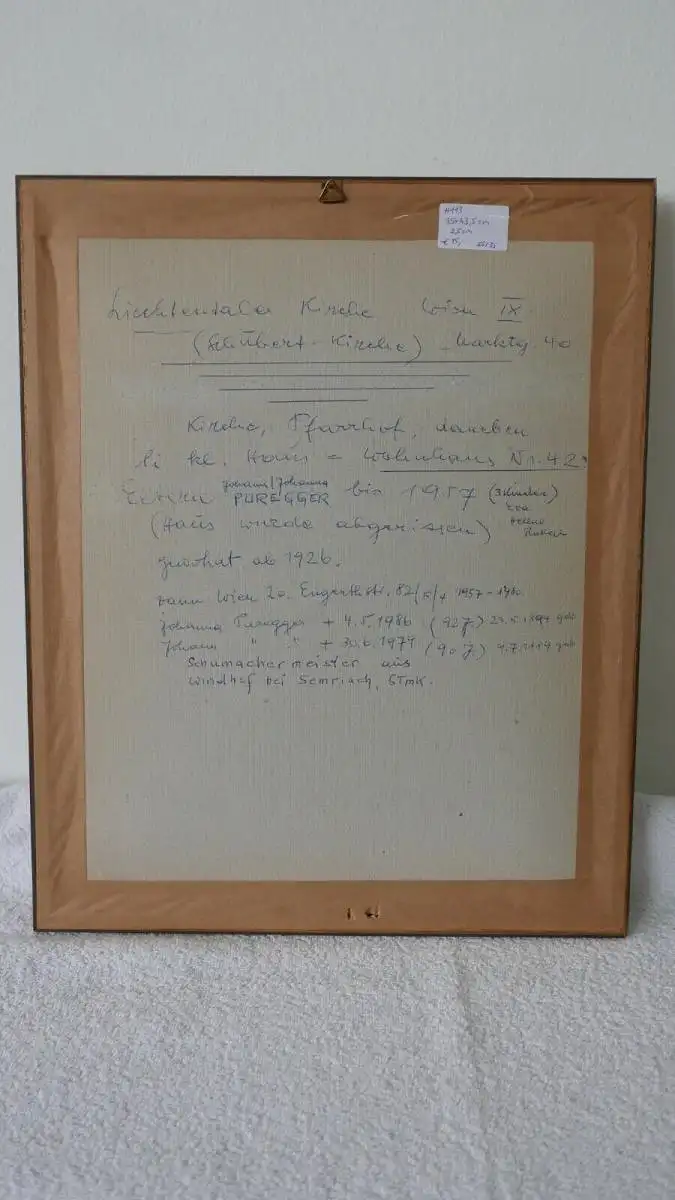 #113
35x43,5cm
2,5cm
€ 15,
Liechtentaler Kirche Wien IX
(Schubert-Kirche) Marktg. 40
Kirche, Pfarrhof, daneben
li kl. Haus = Wohnhaus Nr. 42
Eltern Johann/Johanna PUREGGER bis 1957 (3 Kinder)
Eva
Helene
(Haus wurde abgerissen)
gewohnt ab 1926.
dann Wien 20. Engerthstr. 82/5/4 1957-
Johanna Puregger + 4.5.1986 (92 J.) geb
Johann " " + 30.6.1979 (90 J.) geb
Schumachermeister aus
Windhof bei Semriach, STmK.